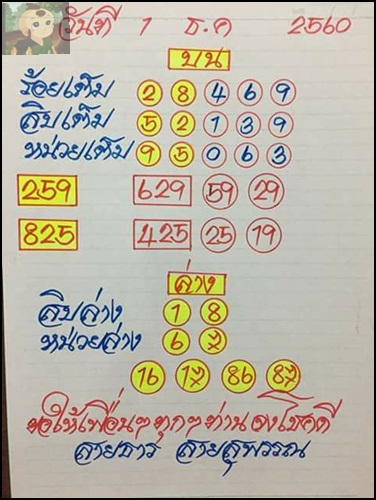 วันที่ 1 ธ.ค 2560
บน
ร้อยเต็ม 2 8 4 6 9
สิบเต็ม 5 2 1 3 9
หน่วยเต็ม 9 5 0 6 3
259 629 59 29
825 425 25 19
ล่าง
สิบล่าง 1 8
หน่วยล่าง 6 7
16 17 86 87
ขอให้เพื่อนๆทุกๆท่านจงโชคดี
สายธาร สายสุพรรณ